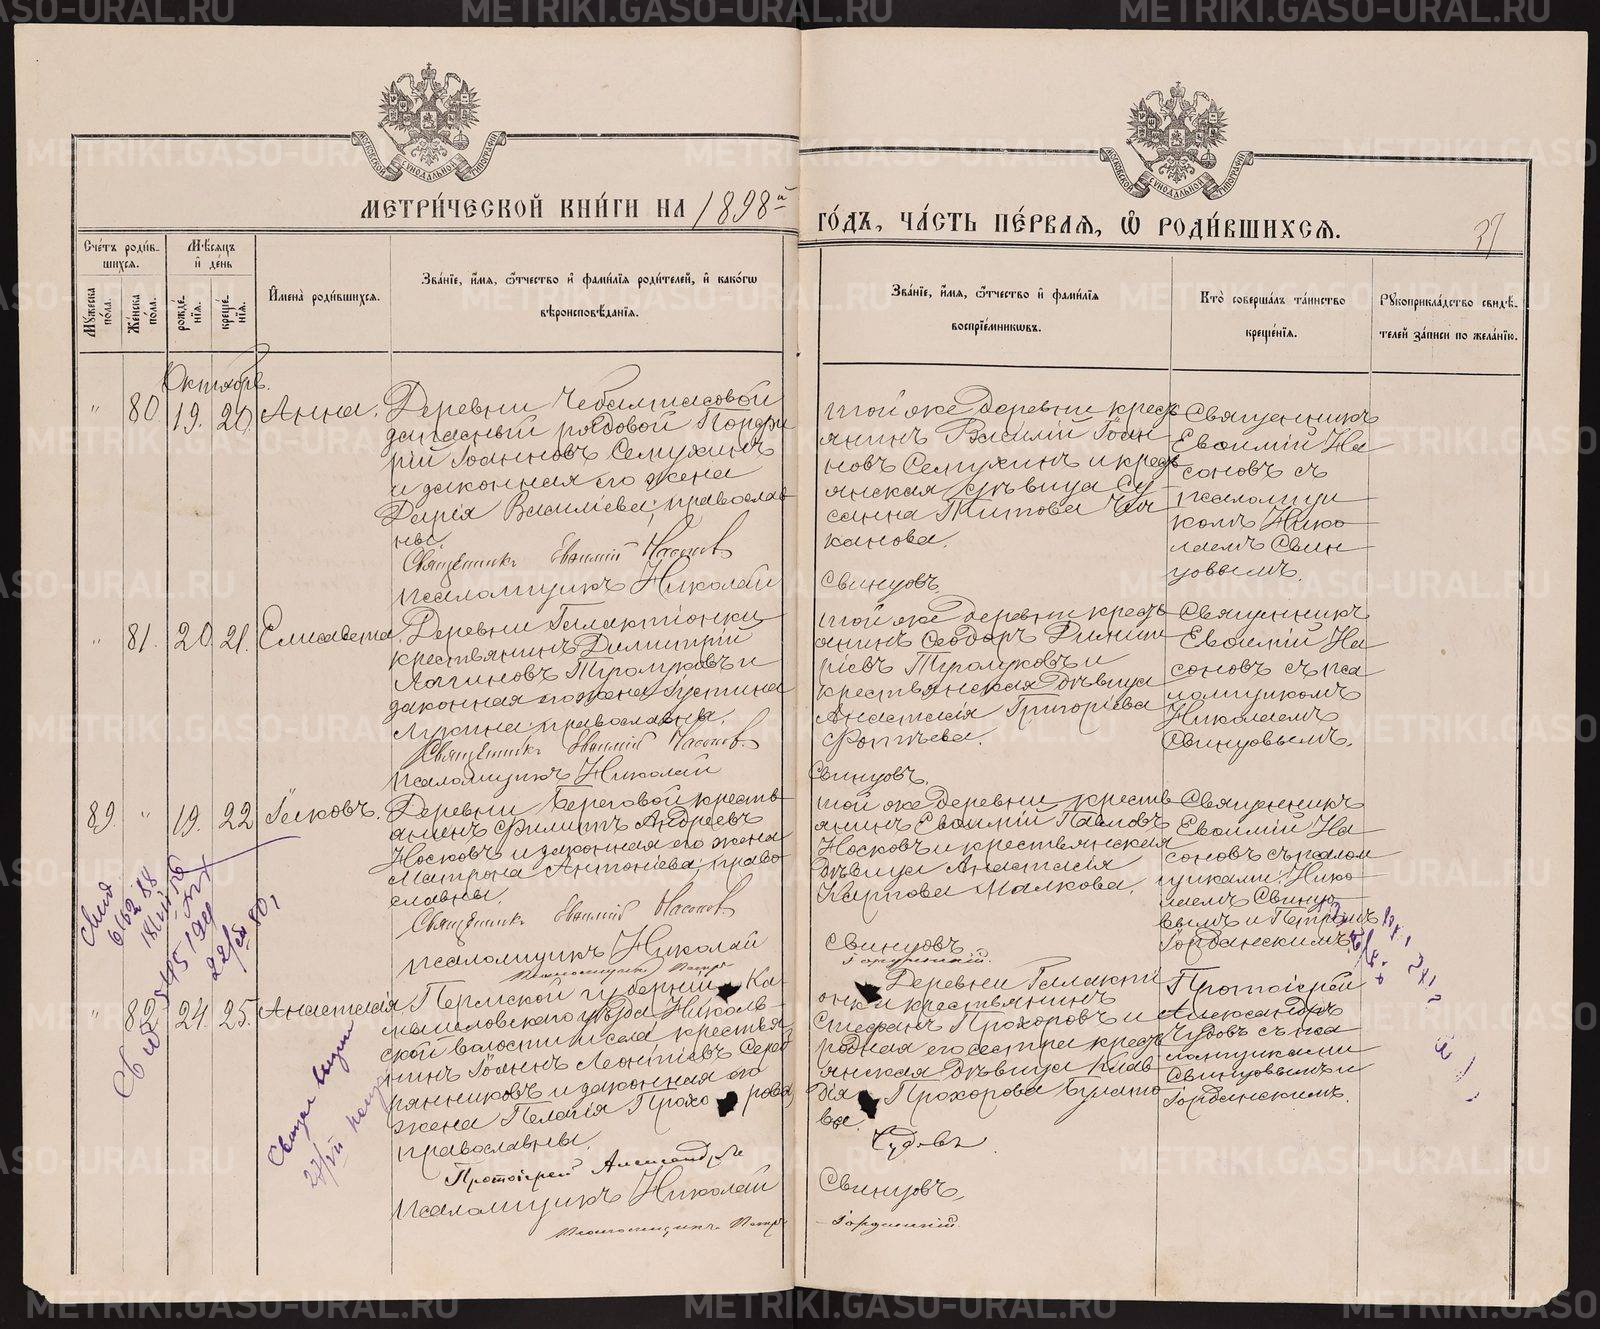 МЕТРИ́ЧЕСКОЙ КНИ́ГИ НА 1898й
ГО́ДЪ, ЧА́СТЬ ПЕ́РВАЯ, Ѿ РОДИ́ВШИХСЯ.
Сче́тъ роди́в-
шихся.
Мѣ́сяцъ
и҆ де́нь
Мꙋ́жеска по́ла.
Же́нска по́ла.
рожде́-
нїя.
креще́-
нїя.
И҆мена̀ роди́вшихся.
Зва́нїе, и҆́мя, ѻ҆́тчество и҆ фами́лїя роди́телей, и҆ како́гѡ
вѣроисповѣ́данїя.
Зва́нїе, и҆́мя, ѻ҆́тчество и҆ фами́лїя
воспрїе́мникѡвъ.
Кто̀ соверша́лъ та́инство
креще́нїя.
Рꙋкоприкла́дство свидѣ́-
телей за́писи по жела́нїю.
Октябрь.
" 80. 19. 20. Анна.
Деревни
запасный рядовой Порфи
рій Іоанновъ Семухинъ
и законная его жена
Дарія Васильева; православ
ны.
Священникъ Евѳимій Насонов
псаломщикъ Николай
той же деревни кресть
янинъ Василій Іоан
новъ Семухинъ и кресть
янская дѣвица Су
санна Титова
канова.
Свинцовъ
Священникъ
Евѳимій На
соновъ съ
псаломщи
комъ Нико
лаемъ Свин
цовымъ.
" 81. 20. 21. Елисавета.
Деревни Галактіонки
крестьянинъ Димитрій
Логгиновъ
законная его жена Іустина
православны.
Священникъ Евѳимій Насонов.
псаломщикъ Николай
той же деревни кресть
янинъ Ѳеодоръ Димит
ріевъ
крестьянская дѣвица
Анастасія Григоріева
Свинцовъ.
Священникъ
Евѳимій На
соновъ съ пса
ломщикомъ
Николаемъ
Свинцовымъ.
89. " 19. 22 Іаковъ.
Деревни Береговой кресть
янинъ Филиппъ Андреевъ
Носковъ и законная его жена
Матрона Антоніева; право
славны.
Священникъ Евѳимій Насонов.
псаломщикъ Николай
Псаломщикъ Петръ
той же деревни кресть
янинъ Евѳимій Павловъ
Носковъ и крестьянская
дѣвица Анастасія
Карпова Малкова.
Свинцовъ
Горданскій.
Священникъ
Евѳимій На
соновъ съ псалом
щиками Нико
лаемъ Свинцо
вымъ и Петромъ
Горданскимъ
" 82. 24. 25. Анастасія
Пермской губерніи, Ка
мышловскаго уѣзда, Николь
ской волости и села крестья
нинъ Іоаннъ Леонтіевъ Сереб
рянниковъ и законная его
жена Пелагія Прохорова,
православны.
Протоіерей Александръ
псаломщикъ Николай
Псаломщикъ Петръ
Деревни Галакті
онки крестьянинъ
Стефанъ Прохоровъ и
родная его сестра кресть
янская дѣвица Клав
дія Прохорова
Чудовъ
Свинцовъ,
Горданскій.
Протоіерей
Александръ
Чудовъ съ пса
ломщиками
Свинцовымъ и
Горданскимъ.
METRIKI.GASO-URAL.RU